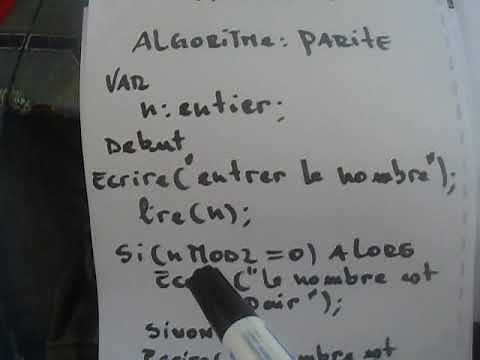 ALGORITME: PARITE
VAR
n: entier;
Debut
Ecrire("entrer le nombre");
lire(n);
Si(n MOD2 = 0) ALORS
("le nombre est
pair");
Sinon
nombre est